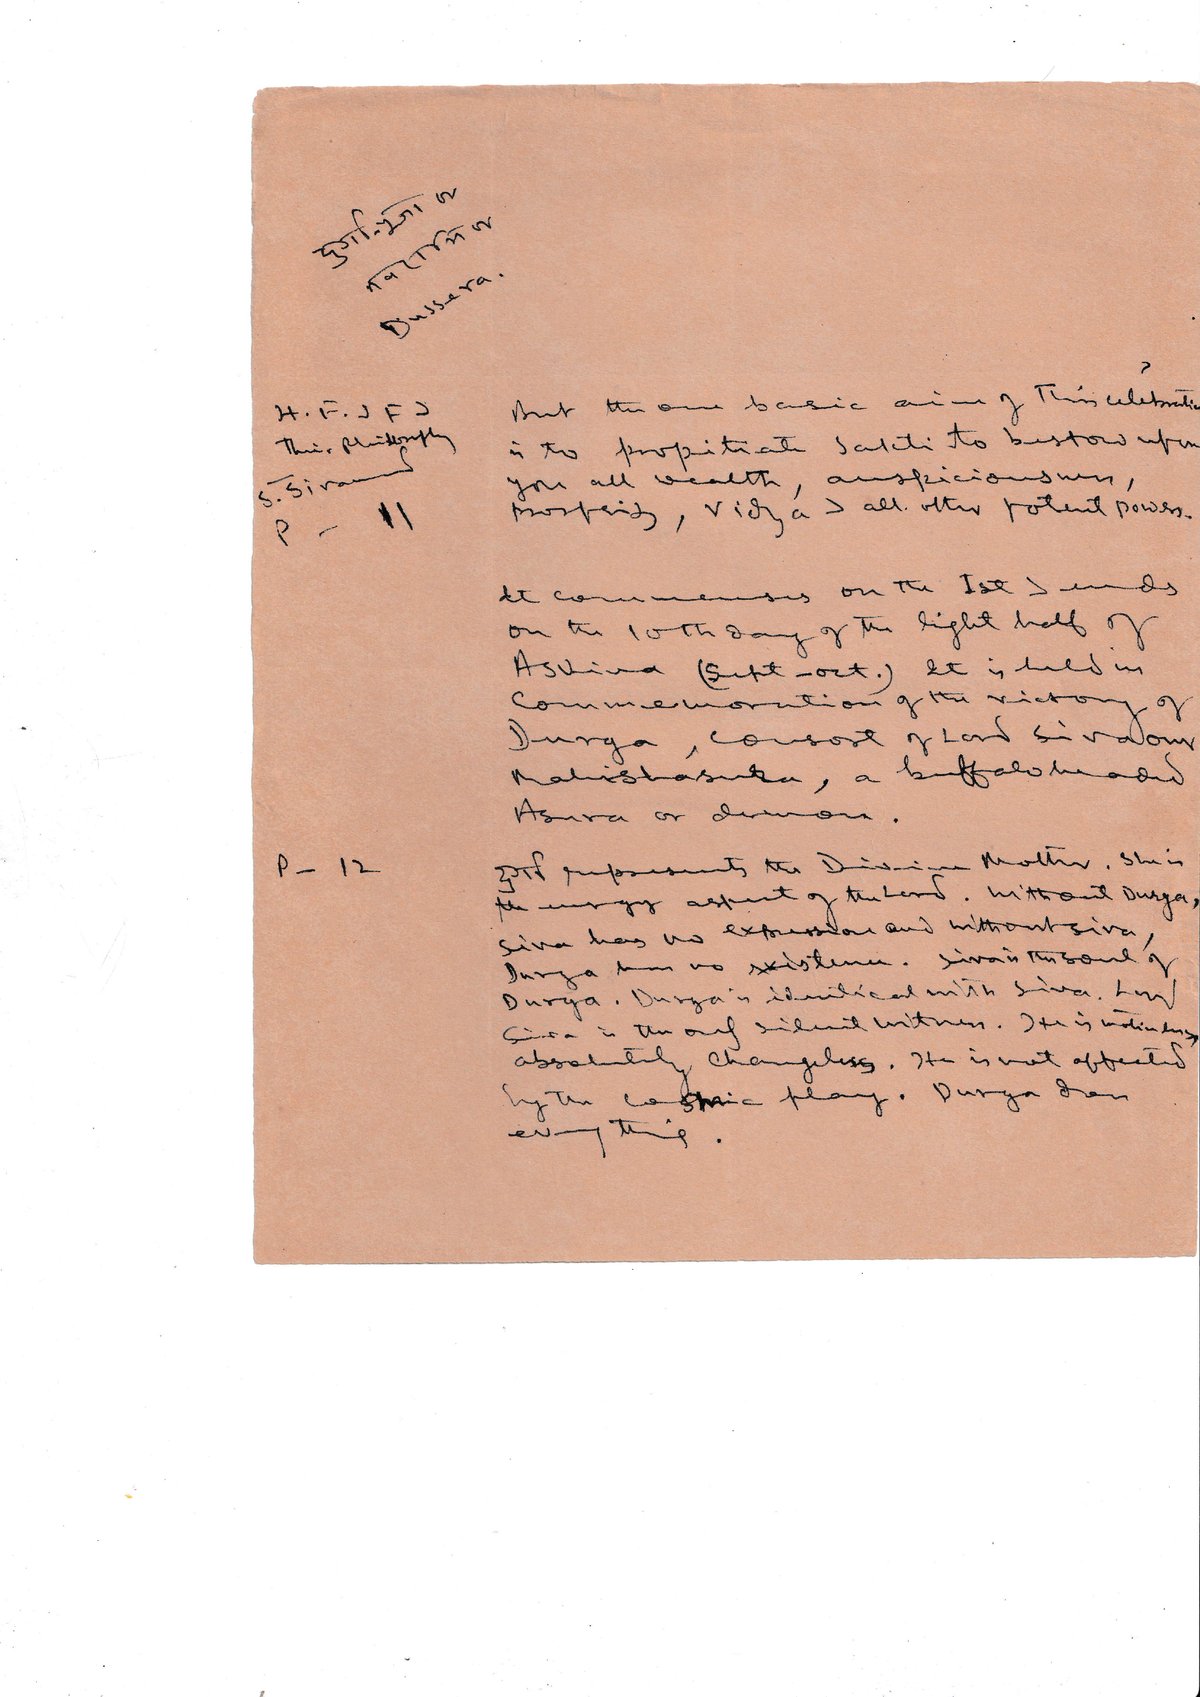 दुर्गा-पूजा or
नवरात्रि or
Dussera.
H. F. & F &
Their Philosophy
S. Sivanand
P - 11
But the one basic aim of This celebration
is to propitiate Sakti to bestow upon
you all wealth, auspiciousness,
prosperity, Vidya & all other potent powers.
It commenses on the Ist & ends
on the 10th day of the light half of
Asvina (Sept-oct.) It is held in
Commemoration of the victory of
Durga, consort of Lord Siva over
Mahishasura, a buffalo headed
Asura or demon.
P - 12
दुर्गा represents the Divine Mother. She is
the energy aspect of the Lord. Without Durga,
Siva has no expression and without Siva,
Durga has no existence. Siva is the soul of
Durga. Durga is identical with Siva. Lord
Siva is the only silent witness. He is motionless,
absolutely changeless. He is not affected
by the cosmic play. Durga does
everything.